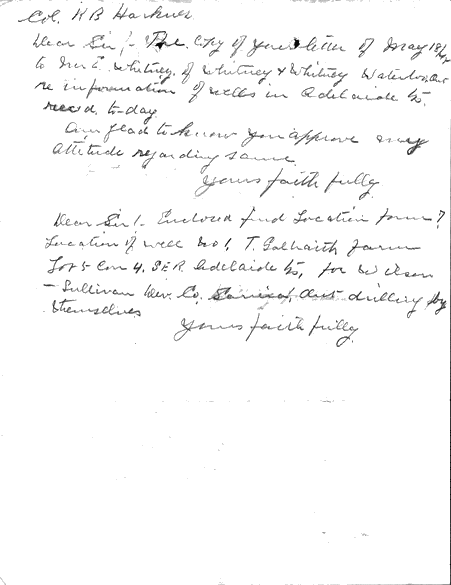 Col. R B Harkness
Dear Sir/- The copy of your letter of May 18
to Mr E. Whitney, of Whitney & Whitney Waterloo, Ont
re information of wells in Adelaide Tp,
recevd, to-day
Am glad to know you approve my
attitude regarding same
Yours faithfully
Dear Sir/- Enclosed find Location form?
Location of well No 1, T. Galbraith farm
Lot 5 Con 4, SER Adelaide Tp, for Wilson
- Sullivan Dev. Co. Sarnia, Ont drilling by
themselves
Yours faithfully